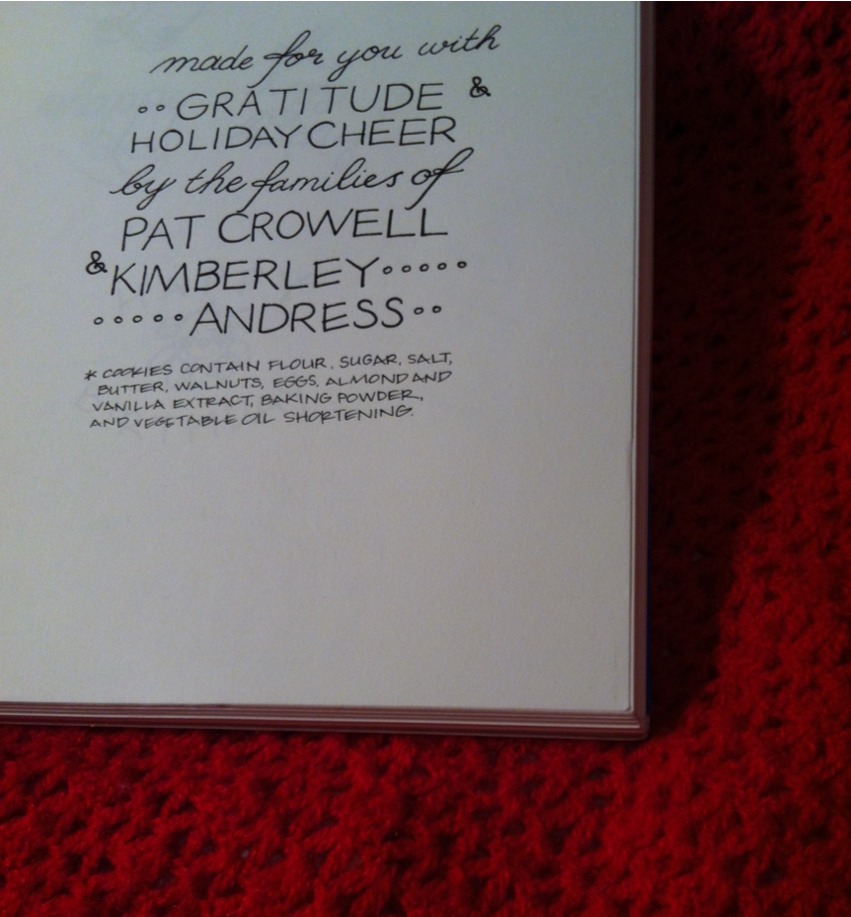 made for you with
GRATITUDE &
HOLIDAY CHEER
by the families of
PAT CROWELL
& KIMBERLEY
ANDRESS
* COOKIES CONTAIN FLOUR, SUGAR, SALT,
BUTTER, WALNUTS, EGGS, ALMOND AND
VANILLA EXTRACT, BAKING POWDER,
AND VEGETABLE OIL SHORTENING.